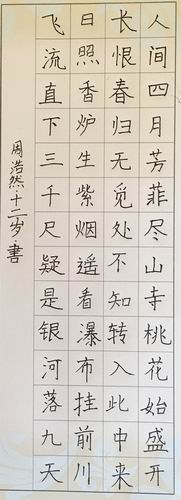 人间四月芳菲尽山寺桃花始盛开
长恨春归无觅处不知转入此中来
日照香炉生紫烟遥看瀑布挂前川
飞流直下三千尺疑是银河落九天
周浩然·十二岁·書